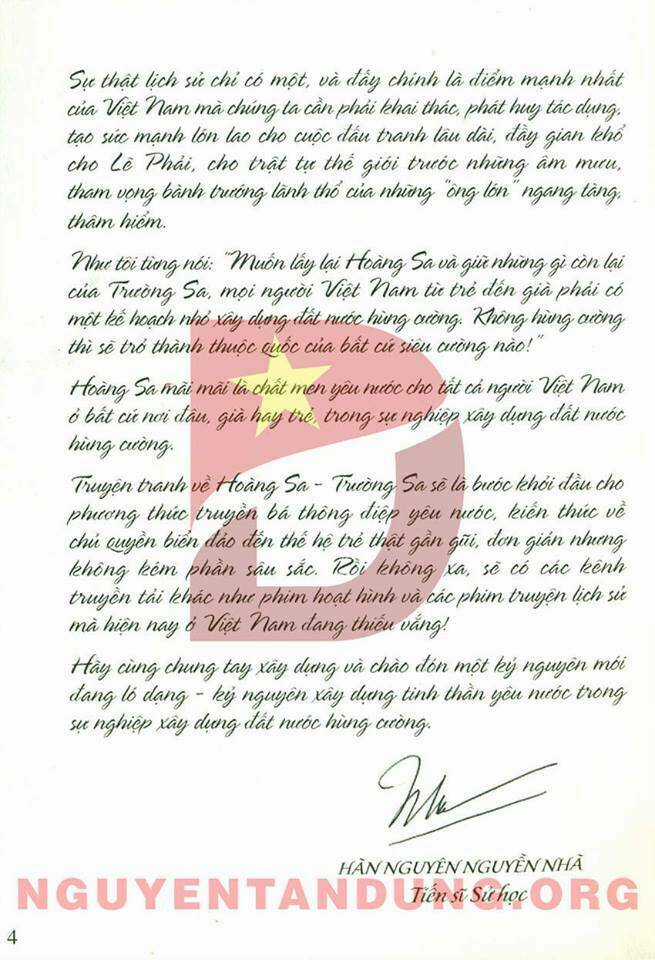 Sự thật lịch sử chỉ có một, và đấy chính là điểm mạnh nhất
của Việt Nam mà chúng ta cần phải khai thác, phát huy tác dụng,
tạo sức mạnh lớn lao cho cuộc đấu tranh lâu dài, đầy gian khổ
cho Lẽ Phải, cho trật tự thế giới trước những âm mưu,
tham vọng bành trướng lãnh thổ của những "ông lớn" ngang tàng,
thâm hiểm.
Như tôi từng nói: "Muốn lấy lại Hoàng Sa và giữ những gì còn lại
của Trường Sa, mọi người Việt Nam từ trẻ đến già phải có
một kế hoạch nhỏ xây dựng đất nước hùng cường. Không hùng cường
thì sẽ trở thành thuộc quốc của bất cứ siêu cường nào!"
Hoàng Sa mãi mãi là chất men yêu nước cho tất cả người Việt Nam
ở bất cứ nơi đâu, già hay trẻ, trong sự nghiệp xây dựng đất nước
hùng cường.
Truyện tranh về Hoàng Sa - Trường Sa sẽ là bước khởi đầu cho
phương thức truyền bá thông điệp yêu nước, kiến thức về
chủ quyền biển đảo đến thế hệ trẻ thật gần gũi, đơn giản nhưng
không kém phần sâu sắc. Rồi không xa, sẽ có các kênh
truyền tải khác như phim hoạt hình và các phim truyện lịch sử
mà hiện nay ở Việt Nam đang thiếu vắng!
Hãy cùng chung tay xây dựng và chào đón một kỷ nguyên mới
đang ló dạng - kỷ nguyên xây dựng tinh thần yêu nước trong
sự nghiệp xây dựng đất nước hùng cường.
HÃN NGUYÊN NGUYỄN NHÃ
Tiến sĩ Sử học
NGUYENTANDUNG.ORG
4